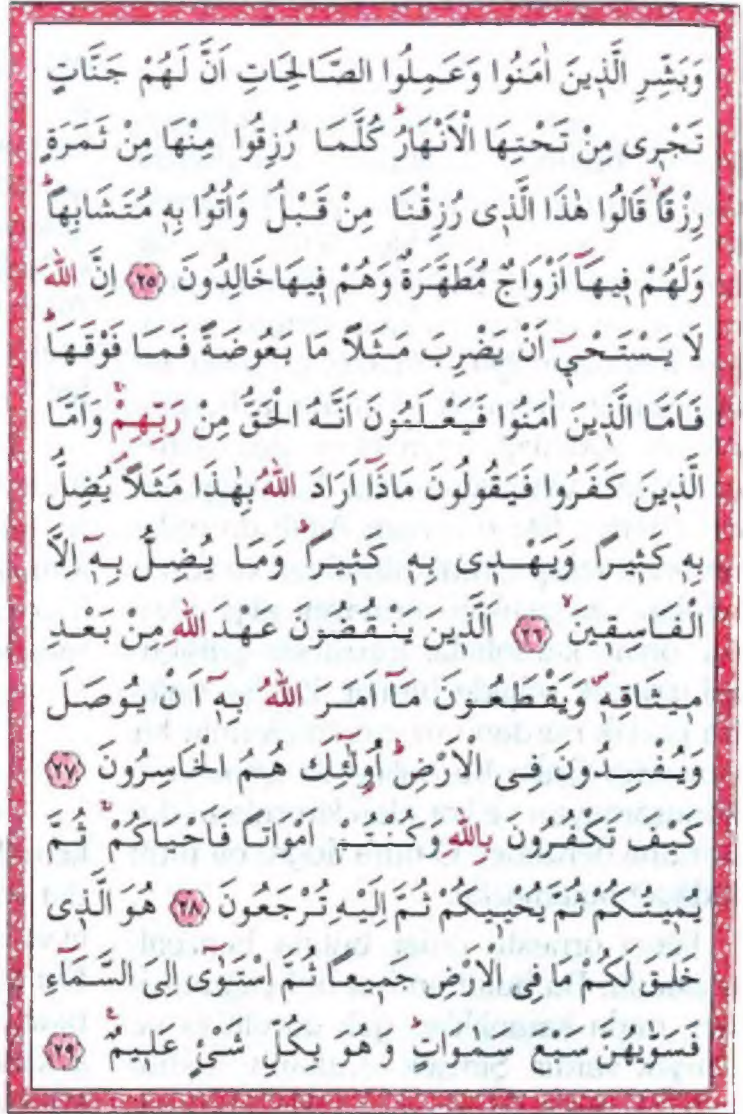 وَبَشِّرِ الَّذ۪ينَ اٰمَنُوا وَعَمِلُوا الصَّالِحَاتِ اَنَّ لَهُمْ جَنَّاتٍ
تَجْر۪ى مِنْ تَحْتِهَا الْاَنْهَارُۜ كُلَّمَا رُزِقُوا مِنْهَا مِنْ ثَمَرَةٍ
رِزْقًاۙ قَالُوا هٰذَا الَّذ۪ى رُزِقْنَا مِنْ قَبْلُ وَاُتُوا بِه۪ مُتَشَابِهًاۜ
وَلَهُمْ ف۪يهَٓا اَزْوَاجٌ مُطَهَّرَةٌ وَهُمْ ف۪يهَا خَالِدُونَ ﴿٢٥﴾ اِنَّ اللّٰهَ
لَا يَسْتَحْي۪ٓ اَنْ يَضْرِبَ مَثَلًا مَا بَعُوضَةً فَمَا فَوْقَهَاۜ
فَاَمَّا الَّذ۪ينَ اٰمَنُوا فَيَعْلَمُونَ اَنَّهُ الْحَقُّ مِنْ رَبِّهِمْۚ وَاَمَّا
الَّذ۪ينَ كَفَرُوا فَيَقُولُونَ مَاذَٓا اَرَادَ اللّٰهُ بِهٰذَا مَثَلًاۢ يُضِلُّ
بِه۪ كَث۪يرًا وَيَهْد۪ى بِه۪ كَث۪يرًاۜ وَمَا يُضِلُّ بِه۪ٓ اِلَّا
الْفَاسِق۪ينَۙ ﴿٢٦﴾ اَلَّذ۪ينَ يَنْقُضُونَ عَهْدَ اللّٰهِ مِنْ بَعْدِ
م۪يثَاقِه۪ۖ وَيَقْطَعُونَ مَٓا اَمَرَ اللّٰهُ بِه۪ٓ اَنْ يُوصَلَ
وَيُفْسِدُونَ فِى الْاَرْضِۜ اُو۬لٰٓئِكَ هُمُ الْخَاسِرُونَ ﴿٢٧﴾
كَيْفَ تَكْفُرُونَ بِاللّٰهِ وَكُنْتُمْ اَمْوَاتًا فَاَحْيَاكُمْۚ ثُمَّ
يُم۪يتُكُمْ ثُمَّ يُحْي۪يكُمْ ثُمَّ اِلَيْهِ تُرْجَعُونَ ﴿٢٨﴾ هُوَ الَّذ۪ى
خَلَقَ لَكُمْ مَا فِى الْاَرْضِ جَم۪يعًا ثُمَّ اسْتَوٰٓى اِلَى السَّمَٓاءِ
فَسَوّٰيهُنَّ سَبْعَ سَمٰوَاتٍۜ وَهُوَ بِكُلِّ شَيْءٍ عَل۪يمٌ ﴿٢٩﴾